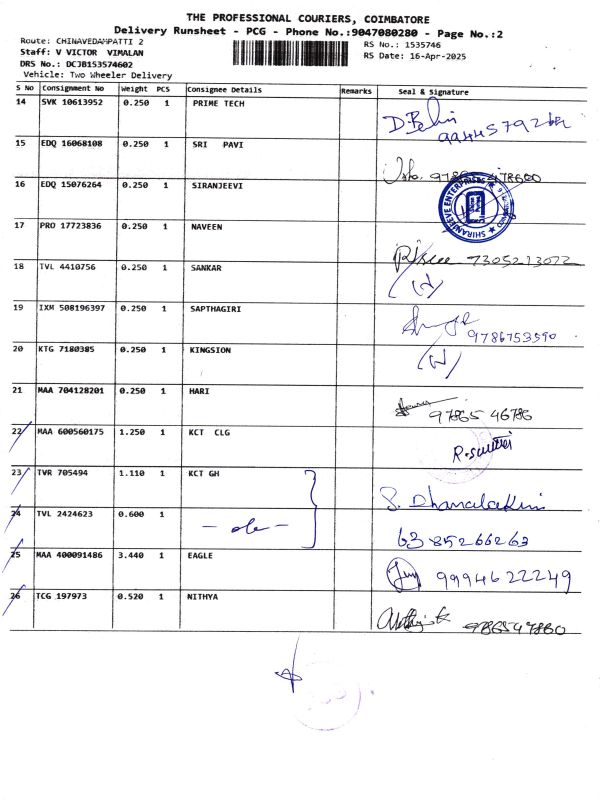 THE PROFESSIONAL COURIERS, COIMBATORE
Delivery Runsheet - PCG - Phone No.:9047080280 - Page No.:2
Route: CHINAVEDAMPATTI 2
RS No.: 1535746
Staff: V VICTOR VIMALAN
RS Date: 16-Apr-2025
DRS No.: DCJB153574602
Vehicle: Two Wheeler Delivery
S No Consignment No Weight PCS Consignee Details Remarks Seal & Signature
14 SVK 10613952 0.250 1 PRIME TECH
15 EDQ 16068108 0.250 1 SRI PAVI
16 EDQ 15076264 0.250 1 SIRANJEEVI
SHIRANJEEVE ENTERPRISES
17 PRO 17723836 0.250 1 NAVEEN
7305213072
18 TVL 4410756 0.250 1 SANKAR
19 IXM 508196397 0.250 1 SAPTHAGIRI
9786753590
20 KTG 7180385 0.250 1 KINGSION
21 MAA 704128201 0.250 1 HARI
97865 46786
22 MAA 600560175 1.250 1 KCT CLG
23 TVR 705494 1.110 1 KCT GH
S. Dhanalakshmi
24 TVL 2424623 0.600 1 - do -
6385266263
25 MAA 400091486 3.440 1 EAGLE
9994622249
26 TCG 197973 0.520 1 NITHYA